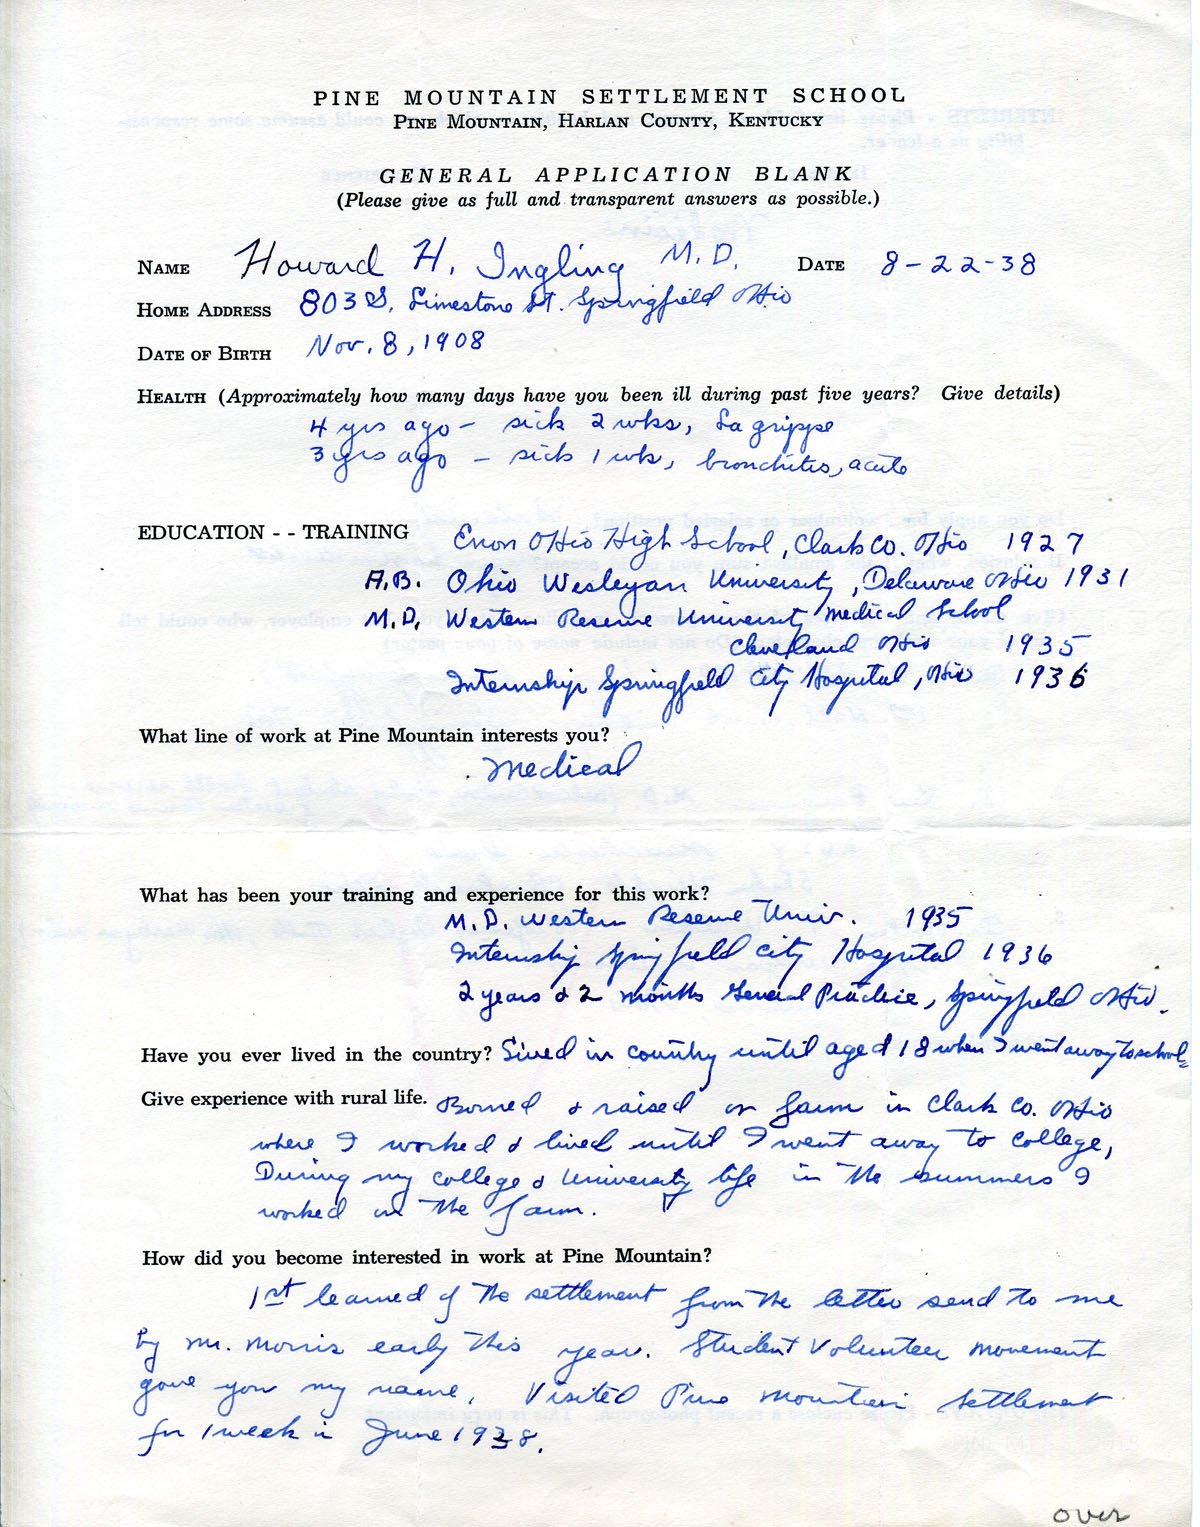 PINE MOUNTAIN SETTLEMENT SCHOOL
PINE MOUNTAIN, HARLAN COUNTY, KENTUCKY
GENERAL APPLICATION BLANK
(Please give as full and transparent answers as possible.)
NAME Howard H. Ingling M.D. DATE 8-22-38
HOME ADDRESS 803 S. Limestone St. Springfield Ohio
DATE OF BIRTH Nov. 8, 1908
HEALTH (Approximately how many days have you been ill during past five years? Give details)
4 yrs ago - sick 2 wks, La grippe
3 yrs ago - sick 1 wk, bronchitis, acute
EDUCATION - - TRAINING Enon Ohio High School, Clark Co. Ohio 1927
A.B. Ohio Wesleyan University, Delaware Ohio 1931
M.D. Western Reserve University Medical School
Cleveland Ohio 1935
Internship Springfield City Hospital, Ohio 1936
What line of work at Pine Mountain interests you?
Medical
What has been your training and experience for this work?
M.D. Western Reserve Univ. 1935
Internship Springfield City Hospital 1936
2 years & 2 months General Practice, Springfield Ohio.
Have you ever lived in the country? Lived in country until aged 18 when I went away to school
Give experience with rural life. Borned & raised on farm in Clark Co. Ohio
where I worked & lived until I went away to college,
During my college & University life in the summers I
worked on the farm.
How did you become interested in work at Pine Mountain?
1st learned of the settlement from the letter send to me
by Mr. Morris early this year. Student Volunteer Movement
gave you my name. Visited Pine Mountain Settlement
for 1 week in June 1938.
over